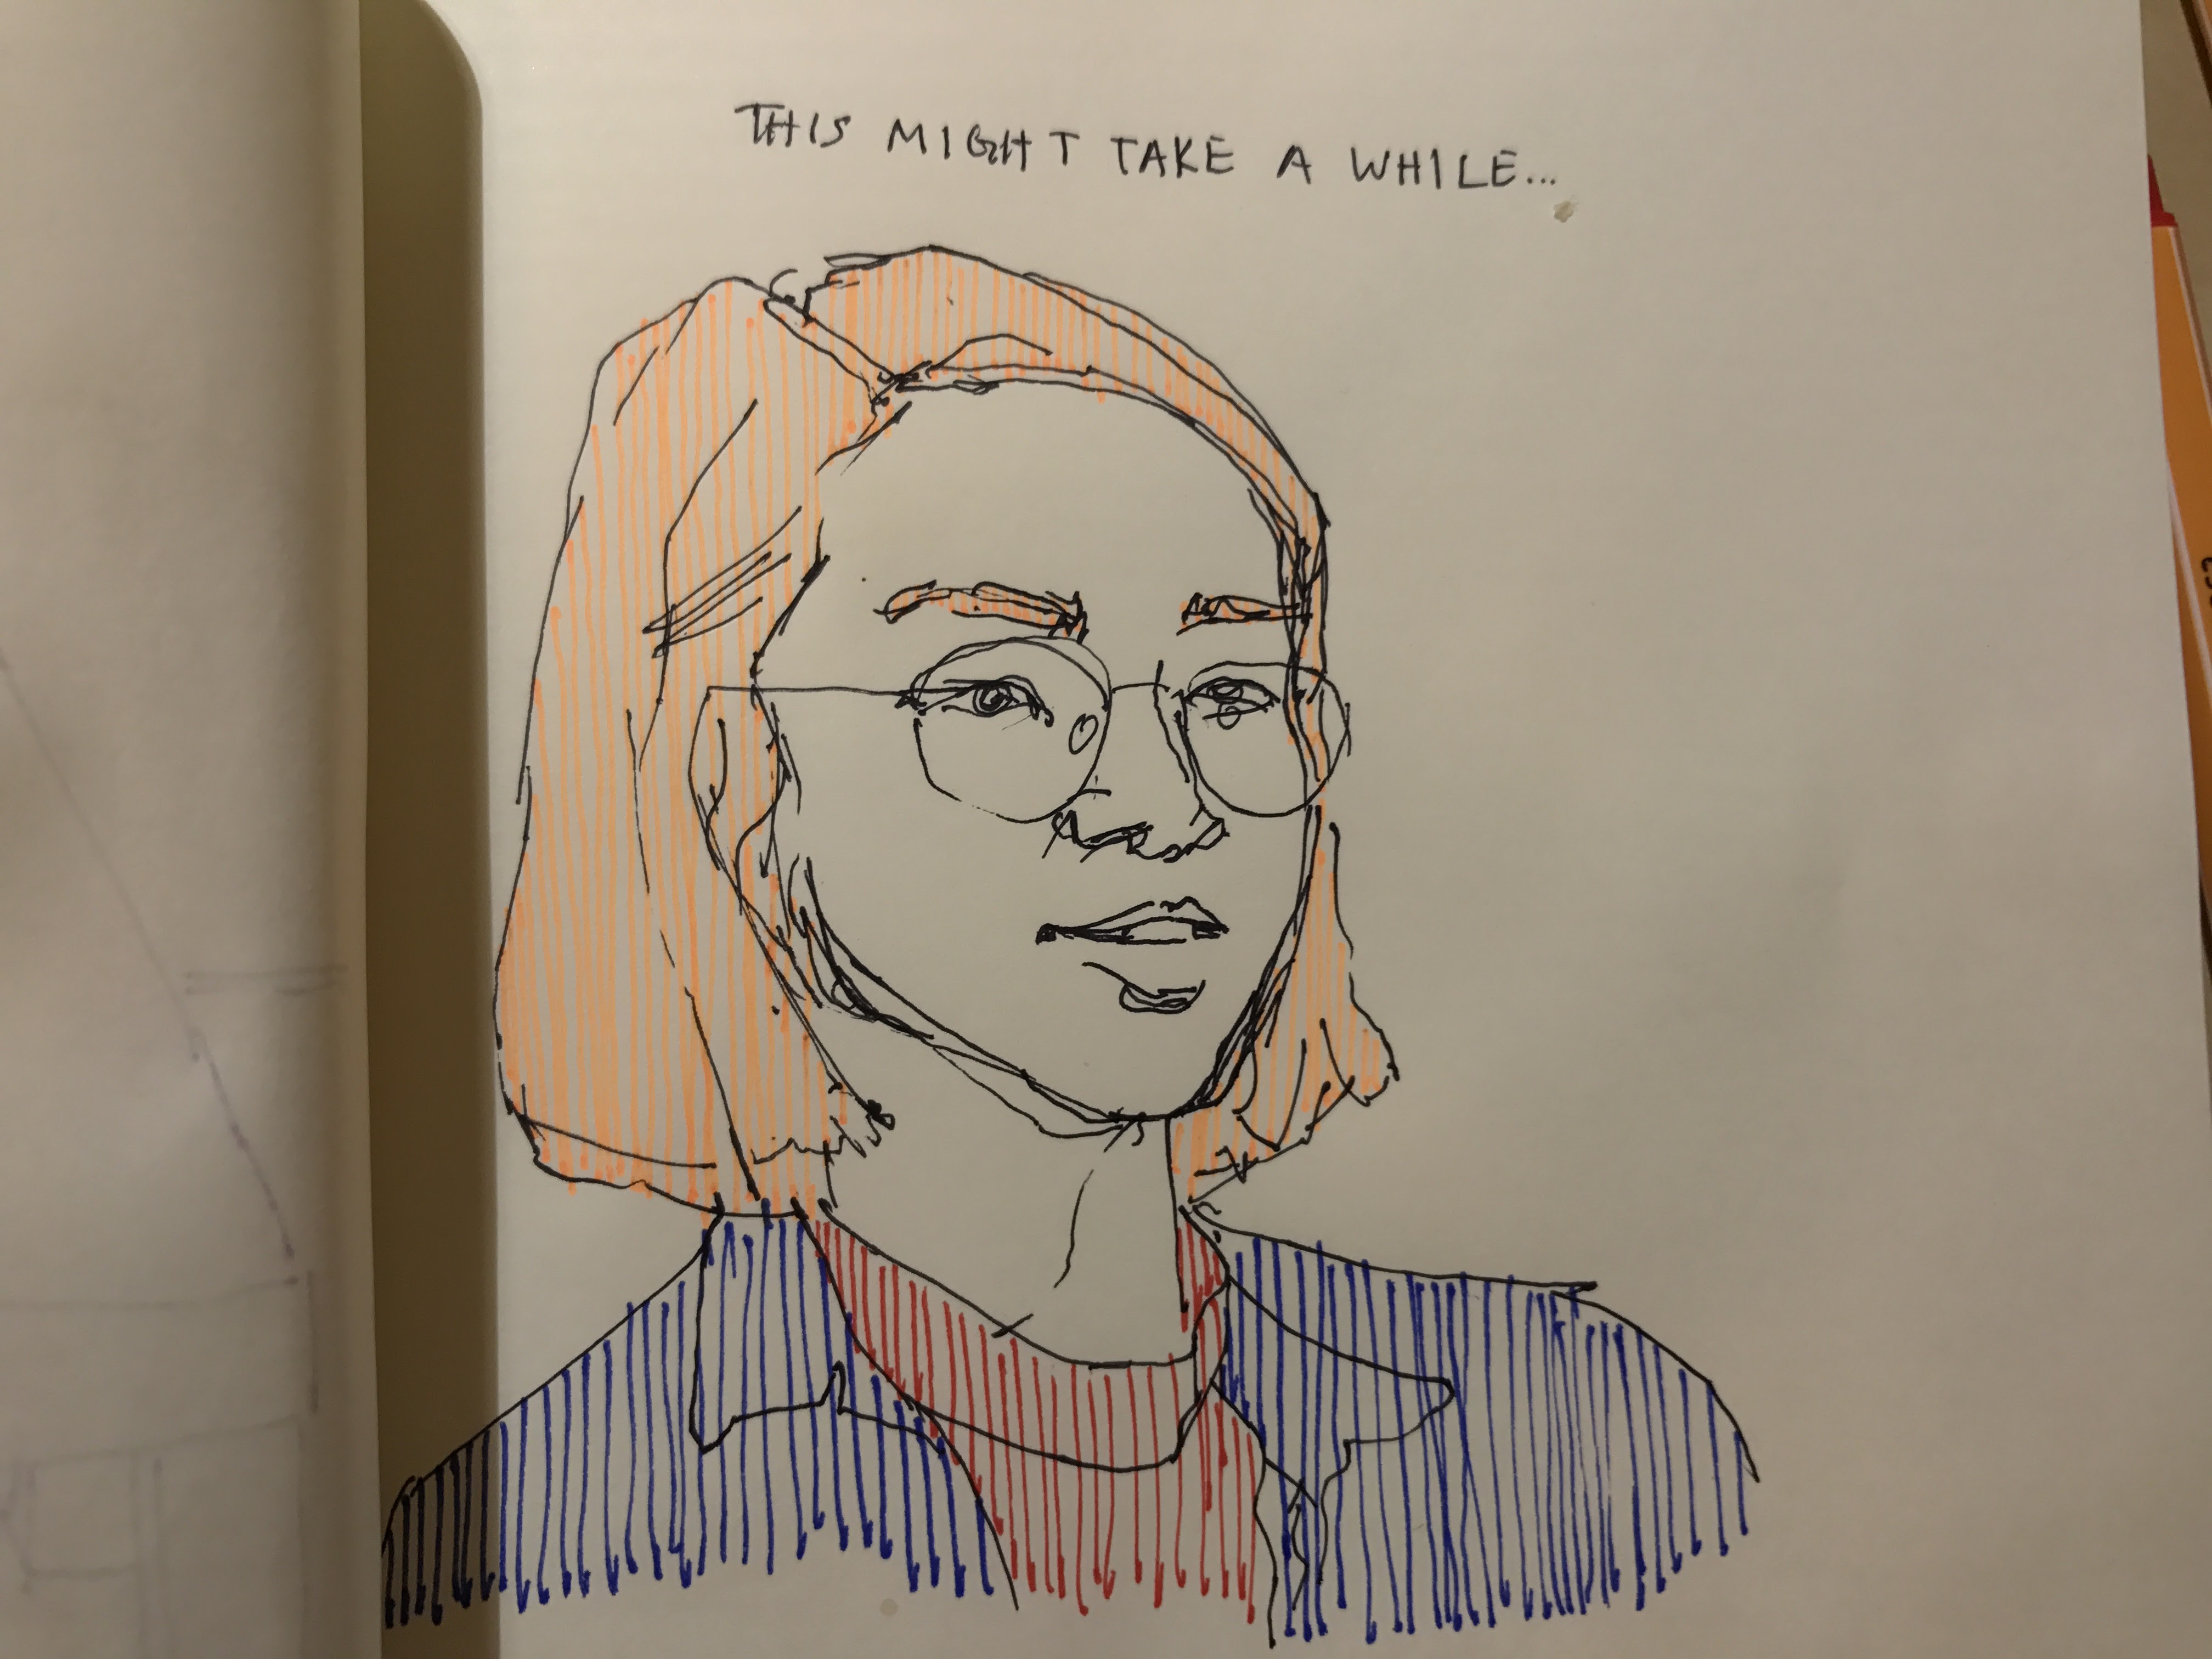 THIS MIGHT TAKE A WHILE...